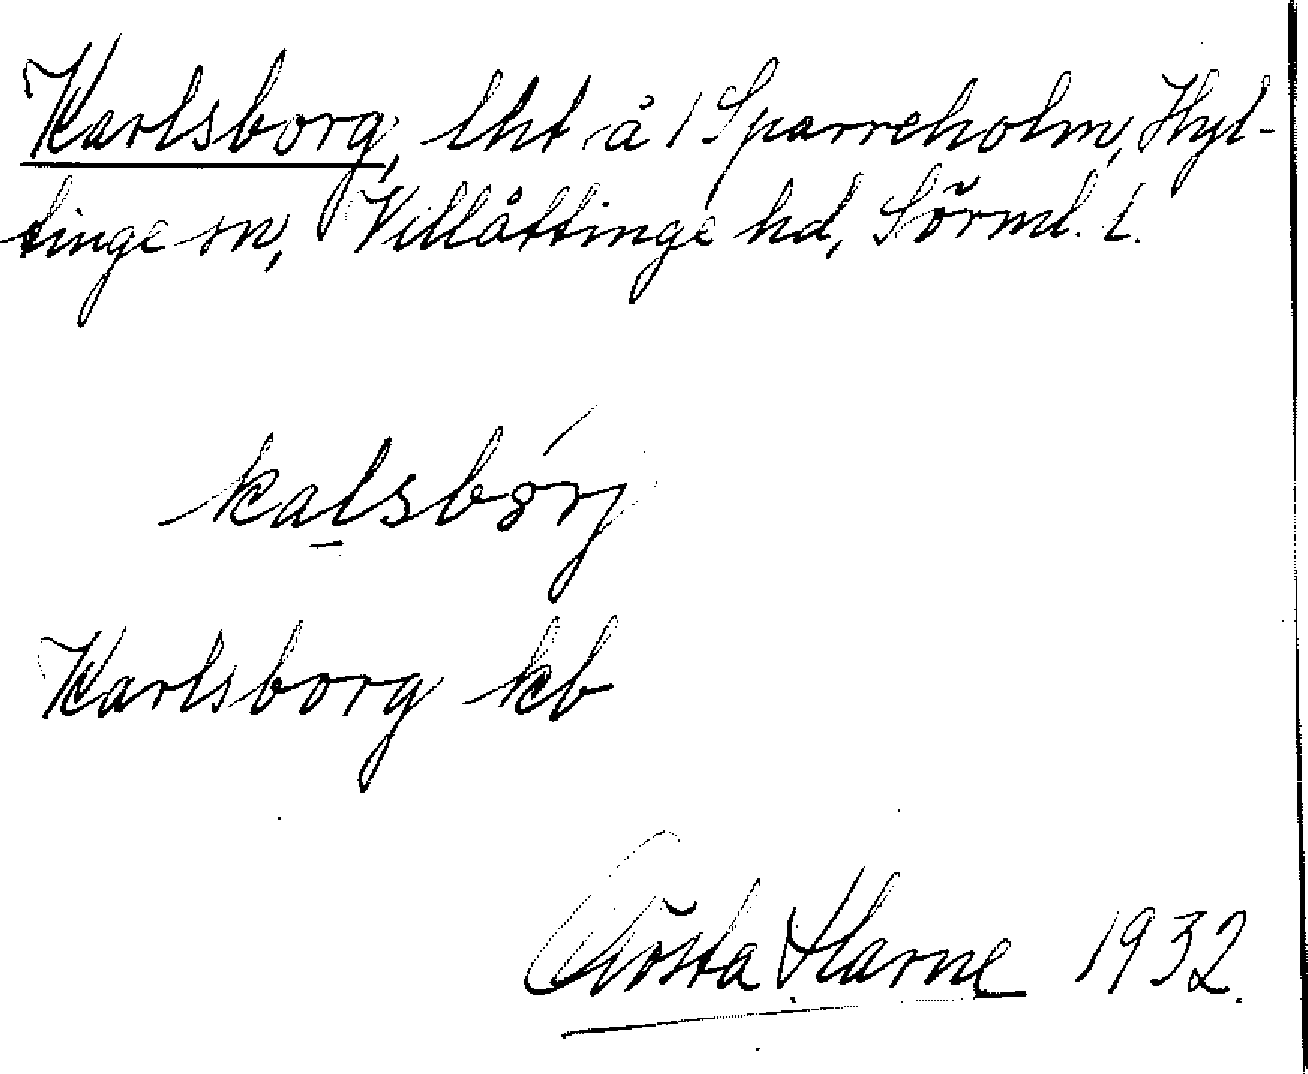 Karlsborg, lht å 1 Sparreholm, Hyl-
tinge sn, Villåttinge hd, Sörml. l.
kalsbórj
Karlsborg kb
Gösta Harne 1932.